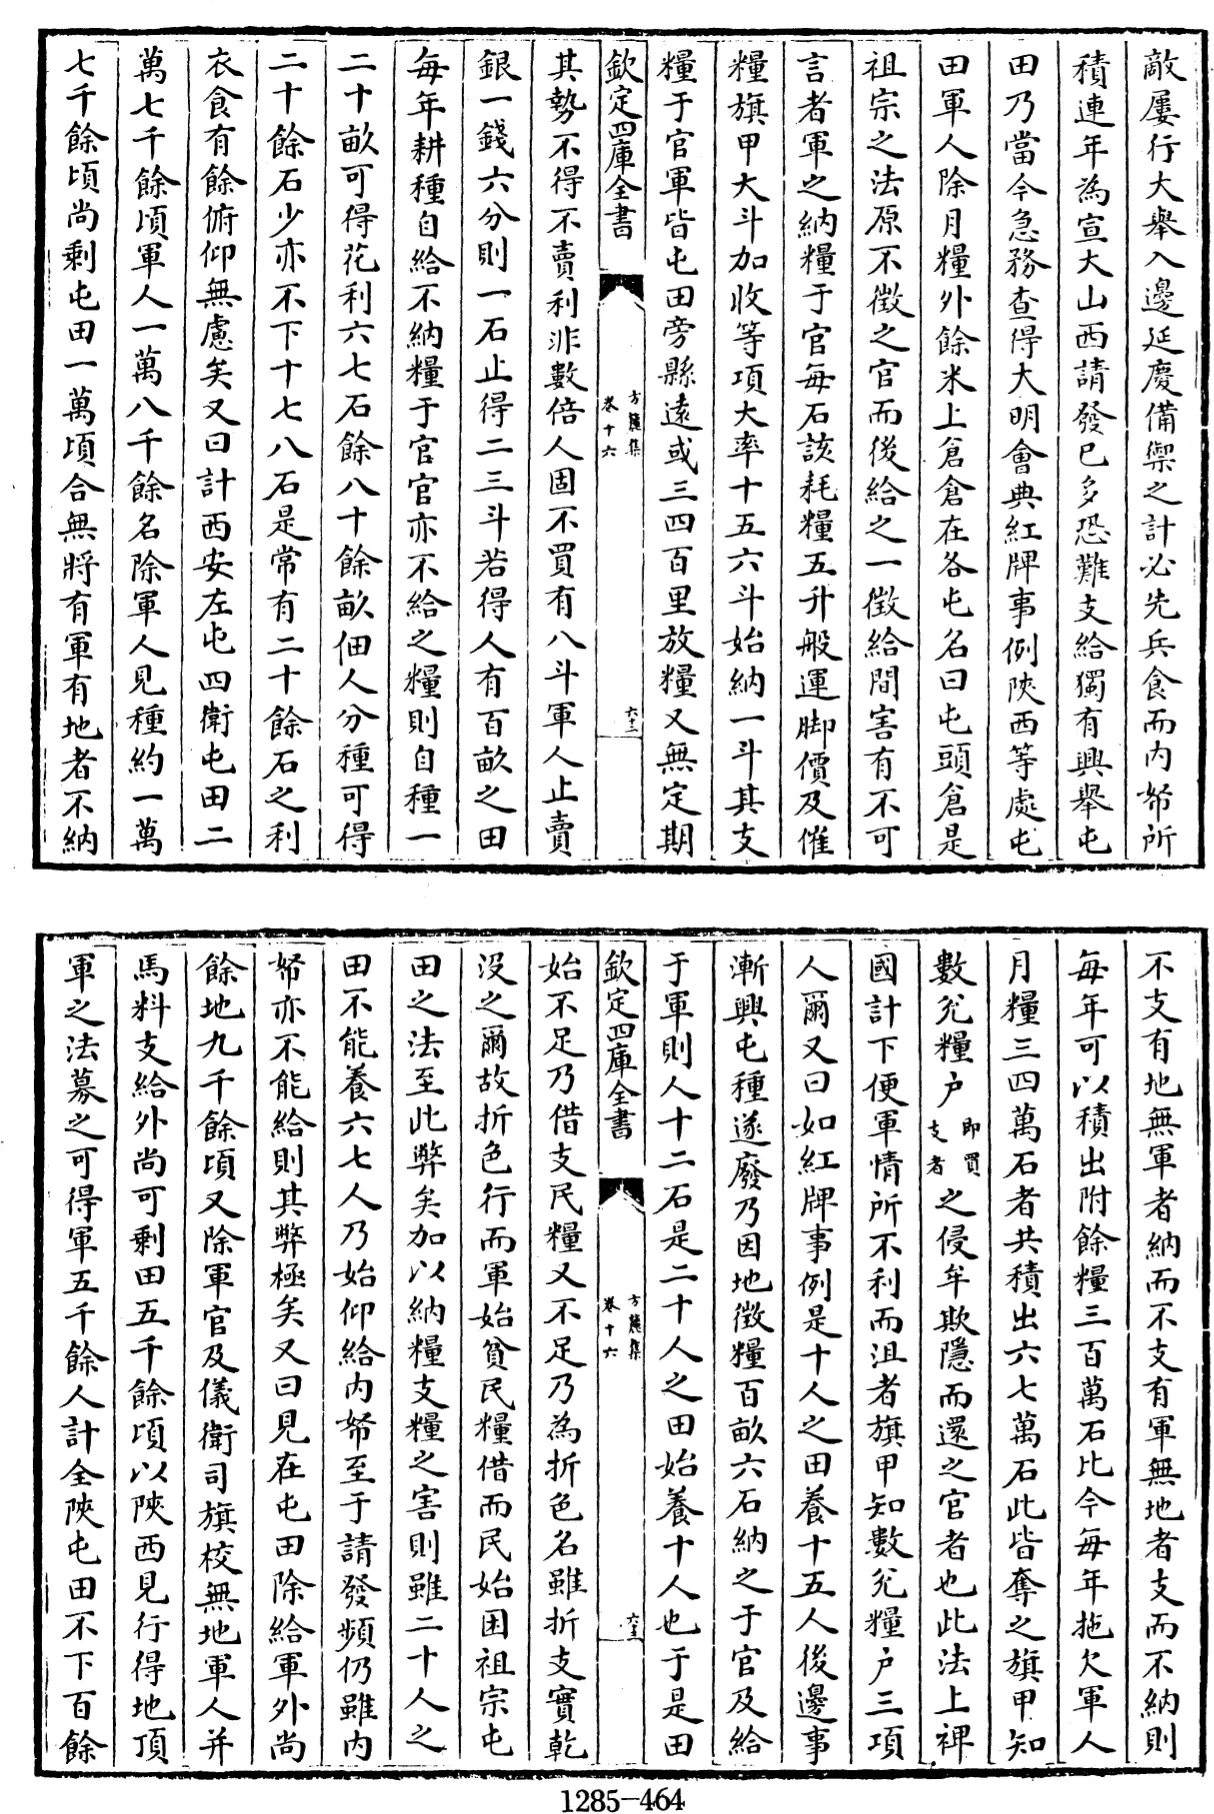 敵屢行大舉入邊延慶備禦之計必先兵食而内帑所
積連年為宣大山西請發已多恐難支給獨有興舉屯
田乃當今急務查得大明會典紅牌事例陜西等處屯
田軍人除月糧外餘米上倉倉在各屯名曰屯頭倉是
祖宗之法原不徵之官而後給之一徵給間害有不可
言者軍之納糧于官每石該耗糧五升般運脚價及催
糧旗甲大斗加收等項大率十五六斗始納一斗其支
糧于官軍皆屯田旁縣遠或三四百里放糧又無定期
欽定四庫全書
方麓集
卷十六
六十三
其勢不得不賣利非數倍人固不買有八斗軍人止賣
銀一錢六分則一石止得二三斗若得人有百畝之田
每年耕種自給不納糧于官官亦不給之糧則自種一
二十畝可得花利六七石餘八十餘畝佃人分種可得
二十餘石少亦不下十七八石是常有二十餘石之利
衣食有餘俯仰無慮矣又曰計西安左屯四衛屯田二
萬七千餘頃軍人一萬八千餘名除軍人見種約一萬
七千餘頃尚剩屯田一萬頃合無將有軍有地者不納
不支有地無軍者納而不支有軍無地者支而不納則
每年可以積出附餘糧三百萬石比今每年拖欠軍人
月糧三四萬石者共積出六七萬石此皆奪之旗甲知
數兊糧户即買支者之侵牟欺隱而還之官者也此法上裨
國計下便軍情所不利而沮者旗甲知數兊糧户三項
人爾又曰如紅牌事例是十人之田養十五人後邊事
漸興屯種遂廢乃因地徵糧百畝六石納之于官及給
于軍則人十二石是二十人之田始養十人也于是田
欽定四庫全書
方麓集
卷十六
六十三
始不足乃借支民糧又不足乃為折色名雖折支實乾
沒之爾故折色行而軍始貧民糧借而民始困祖宗屯
田之法至此弊矣加以納糧支糧之害則雖二十人之
田不能養六七人乃始仰給内帑至于請發頻仍雖内
帑亦不能給則其弊極矣又曰見在屯田除給軍外尚
餘地九千餘頃又除軍官及儀衛司旗校無地軍人并
馬料支給外尚可剩田五千餘頃以陜西見行得地頂
軍之法募之可得軍五千餘人計全陜屯田不下百餘
1285-464